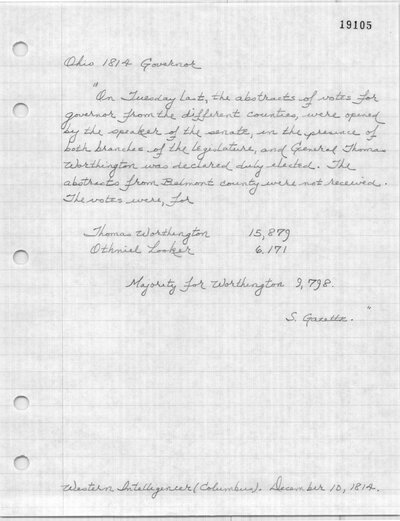 19105
Ohio 1814 Governor
"On Tuesday last, the abstracts of votes for
governor from the different counties, were opened
by the speaker of the senate, in the presence of
both branches of the legislature, and General Thomas
Worthington was declared duly elected. The
abstracts from Belmont county were not received.
The votes were, for
Thomas Worthington 15,879
Othniel Looker 6,171
Majority for Worthington 9,798.
S. Gazette."
Western Intelligencer (Columbus). December 10, 1814.